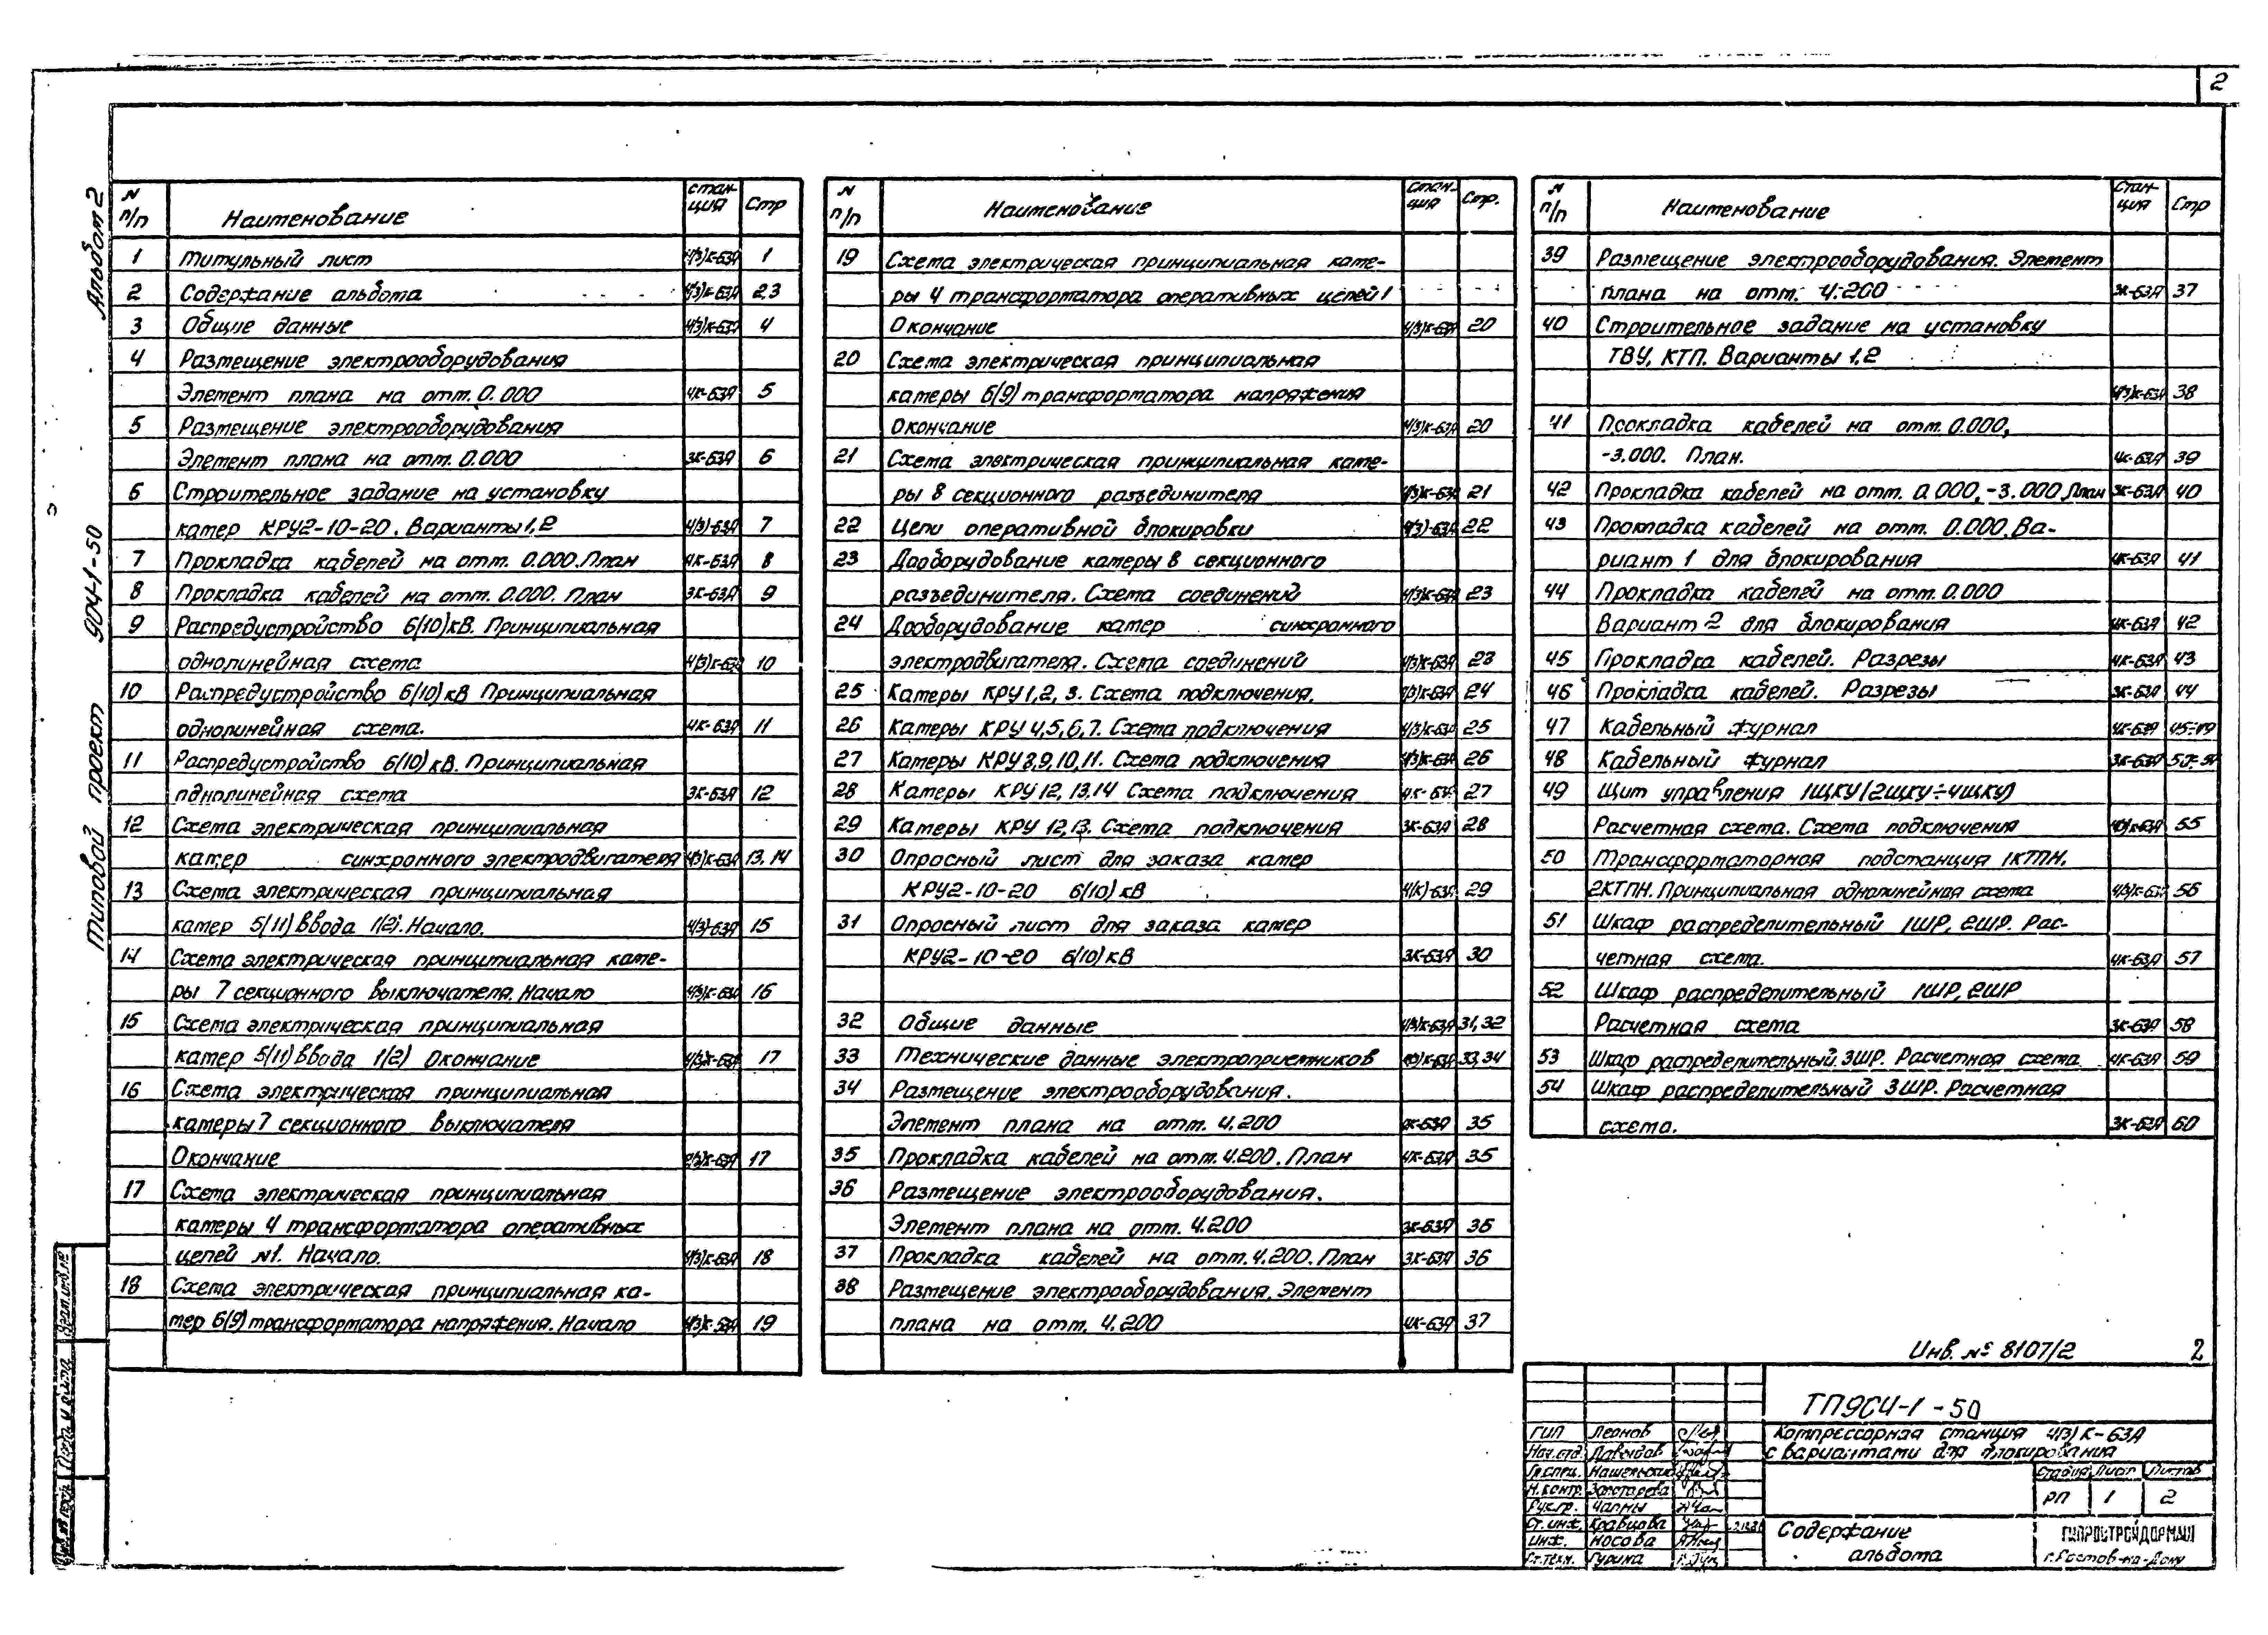 2
Альбом 2
Типовой проект 904-1-50
N п/п Наименование стан-ция Стр
1 Титульный лист 4(3)К-63А 1
2 Содержание альбома 4(3)К-63А 2,3
3 Общие данные 4(3)К-63А 4
4 Размещение электрооборудования
Элемент плана на отм. 0.000 4К-63А 5
5 Размещение электрооборудования
Элемент плана на отм. 0.000 3К-63А 6
6 Строительное задание на установку
камер КРУ2-10-20. Варианты 1,2 4(3)-63А 7
7 Прокладка кабелей на отм. 0.000. План 4К-63А 8
8 Прокладка кабелей на отм. 0.000. План 3К-63А 9
9 Распредустройство 6(10)кВ. Принципиальная
однолинейная схема 4(3)К-63А 10
10 Распредустройство 6(10)кВ Принципиальная
однолинейная схема. 4К-63А 11
11 Распредустройство 6(10)кВ. Принципиальная
однолинейная схема 3К-63А 12
12 Схема электрическая принципиальная
камер синхронного электродвигателя 4(3)К-63А 13,14
13 Схема электрическая принципиальная
камер 5(11) Ввода 1(2). Начало. 4(3)-63А 15
14 Схема электрическая принципиальная каме-
ры 7 секционного выключателя. Начало 4(3)К-63А 16
15 Схема электрическая принципиальная
камер 5(11) Ввода 1(2) Окончание 4(3)К-63А 17
16 Схема электрическая принципиальная
камеры 7 секционного выключателя
Окончание 4(3)К-63А 17
17 Схема электрическая принципиальная
камеры 4 трансформатора оперативных
цепей №1. Начало. 4(3)К-63А 18
18 Схема электрическая принципиальная ка-
мер 6(9) трансформатора напряжения. Начало 4(3)К-63А 19
N п/п Наименование Стан-ция Стр.
19 Схема электрическая принципиальная каме-
ры 4 трансформатора оперативных цепей 1
Окончание 4(3)К-63А 20
20 Схема электрическая принципиальная
камеры 6(9) трансформатора напряжения
Окончание 4(3)К-63А 20
21 Схема электрическая принципиальная каме-
ры 8 секционного разъединителя 4(3)К-63А 21
22 Цепи оперативной блокировки 4(3)-63А 22
23 Дооборудование камеры 8 секционного
разъединителя. Схема соединений 4(3)К-63А 23
24 Дооборудование камер синхронного
электродвигателя. Схема соединений 4(3)К-63А 23
25 Камеры КРУ 1,2,3. Схема подключения. 4(3)К-63А 24
26 Камеры КРУ 4,5,6,7. Схема подключения 4(3)К-63А 25
27 Камеры КРУ 8,9,10,11. Схема подключения 4(3)К-63А 26
28 Камеры КРУ 12,13,14 Схема подключения 27
29 Камеры КРУ 12,13. Схема подключения 3К-63А 28
30 Опросный лист для заказа камер
КРУ2-10-20 6(10)кВ 4(К)-63А 29
31 Опросный лист для заказа камер
КРУ2-10-20 6(10)кВ 3К-63А 30
32 Общие данные 4(3)К-63А 31,32
33 Технические данные электроприемников 4(3)К-63А 33,34
34 Размещение электрооборудования.
Элемент плана на отм. 4.200 4К-63А 35
35 Прокладка кабелей на отм. 4.200. План 4К-63А 35
36 Размещение электрооборудования.
Элемент плана на отм. 4.200 3К-63А 36
37 Прокладка кабелей на отм. 4.200. План 3К-63А 36
38 Размещение электрооборудования. Элемент
плана на отм. 4.200 4К-63А 37
N п/п Наименование Стан-ция Стр
39 Размещение электрооборудования. Элемент
плана на отм. 4.200 3К-63А 37
40 Строительное задание на установку
ТВУ, КТП. Варианты 1,2
4(3)К-63А 38
41 Прокладка кабелей на отм. 0.000,
-3.000. План. 4К-63А 39
42 Прокладка кабелей на отм. 0.000, -3.000. План 3К-63А 40
43 Прокладка кабелей на отм. 0.000. Ва-
риант 1 для блокирования 4К-63А 41
44 Прокладка кабелей на отм. 0.000
Вариант 2 для блокирования 4К-63А 42
45 Прокладка кабелей. Разрезы 4К-63А 43
46 Прокладка кабелей. Разрезы 3К-63А 44
47 Кабельный журнал 4К-63А 45÷49
48 Кабельный журнал 3К-63А 50÷54
49 Щит управления 1ЩКУ (2ЩКУ÷4ЩКУ)
Расчетная схема. Схема подключения 4(3)К-63А 55
50 Трансформаторная подстанция 1КТПН,
2КТПН. Принципиальная однолинейная схема 4(3)К-63А 56
51 Шкаф распределительный 1ШР, 2ШР. Рас-
четная схема. 4К-63А 57
52 Шкаф распределительный 1ШР, 2ШР
Расчетная схема 3К-63А 58
53 Шкаф распределительный 3ШР. Расчетная схема 4К-63А 59
54 Шкаф распределительный 3ШР. Расчетная
схема. 3К-63А 60
Инв. № 8107/2 2
ТП904-1-50
Компрессорная станция 4(3)К-63А
с вариантами для блокирования
ГИП Леонов
Нач.отд. Давыдов
Гл.спец. Нашельский
Н.контр.
Рук.гр. Чалты
Ст.инж. Кравцова
Инж. Носова
Ст.техн. Гурина
Стадия Лист Листов
РП 1 2
Содержание
альбома
ГИПРОСТРОЙДОРМАШ
г.Ростов-на-Дону
Взам.инв.№
Подп. и дата